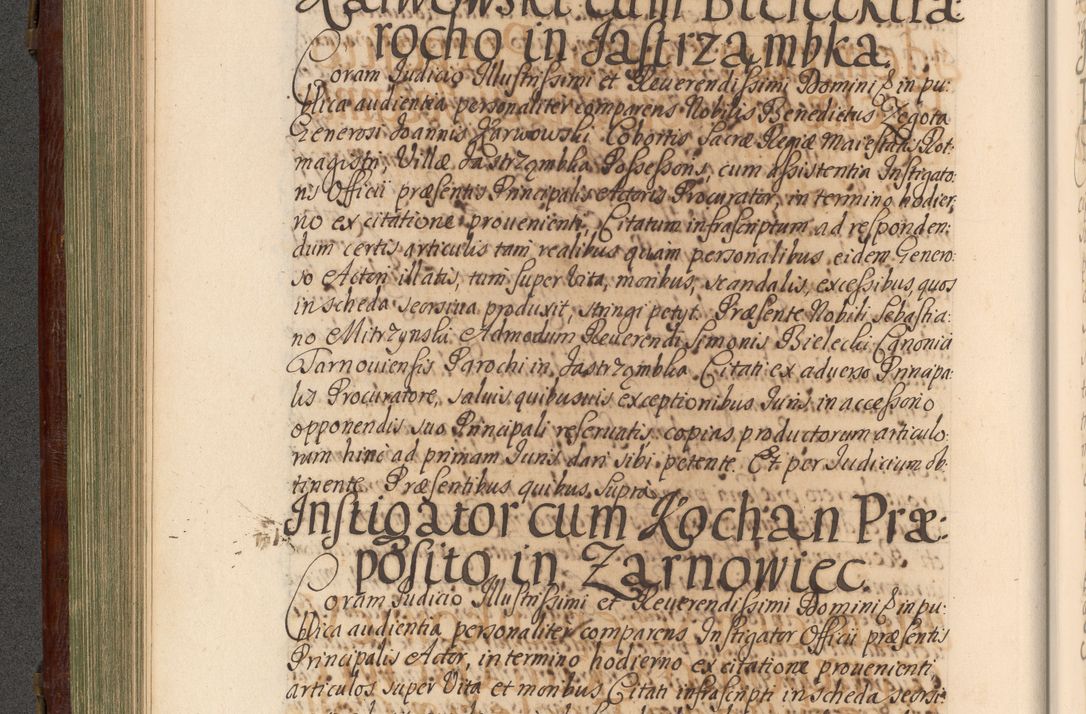 Karwowski cum Bielecki Pa:
rocho in Jastrzambka.
Coram Judicio Illustrissimi et Reuerendissimi Domini &c in pu:
blica audientia personaliter comparens Nobilis Benedictus Zegota
Generosi Joannis Karwowski Cohortis Sacræ Regiæ Maiestatis Rot:
magistri, Villæ Jastrzombka Possessoris, cum assistentia Instigato:
ris Officii præsentis Principalis Actoris Procurator, in termino hodier:
no ex citatione prouenienti, Citatum infrascriptum ad responden:
dum certis articulis tam realibus quam personalibus eidem Genero:
so Actori illatis, tum super Vita, moribus, scandalis, excessibus, quos
in scheda seorsiua produxit, stringi petyt. Præsente Nobili Sebastia:
no Mitrzynski Admodum Reuerendi Simonis Bielecki Canonia
Tarnouiensis Parochi in Jastrzombka Citati ex aduerso Principa:
lis Procuratore, saluis quibusuis exceptionibus Juris in accessorio
opponendis suo Principali reseruatis copias productorum articulo:
rum hinc ad primam Juris dari sibi petente. Et per Judicium ob:
tinente. Præsentibus quibus supra.
Instigator cum Kochan Præ:
posito in Zarnowiec.
Coram Judicio Illustrissimi et Reuerendissimi Domini &c in pu:
blica audientia personaliter comparens Instigator Officii præsentis
Principalis Actor, in termino hodierno ex citatione prouenienti,
articulos super Vita et moribus Citati infrascripti in scheda seorsi: